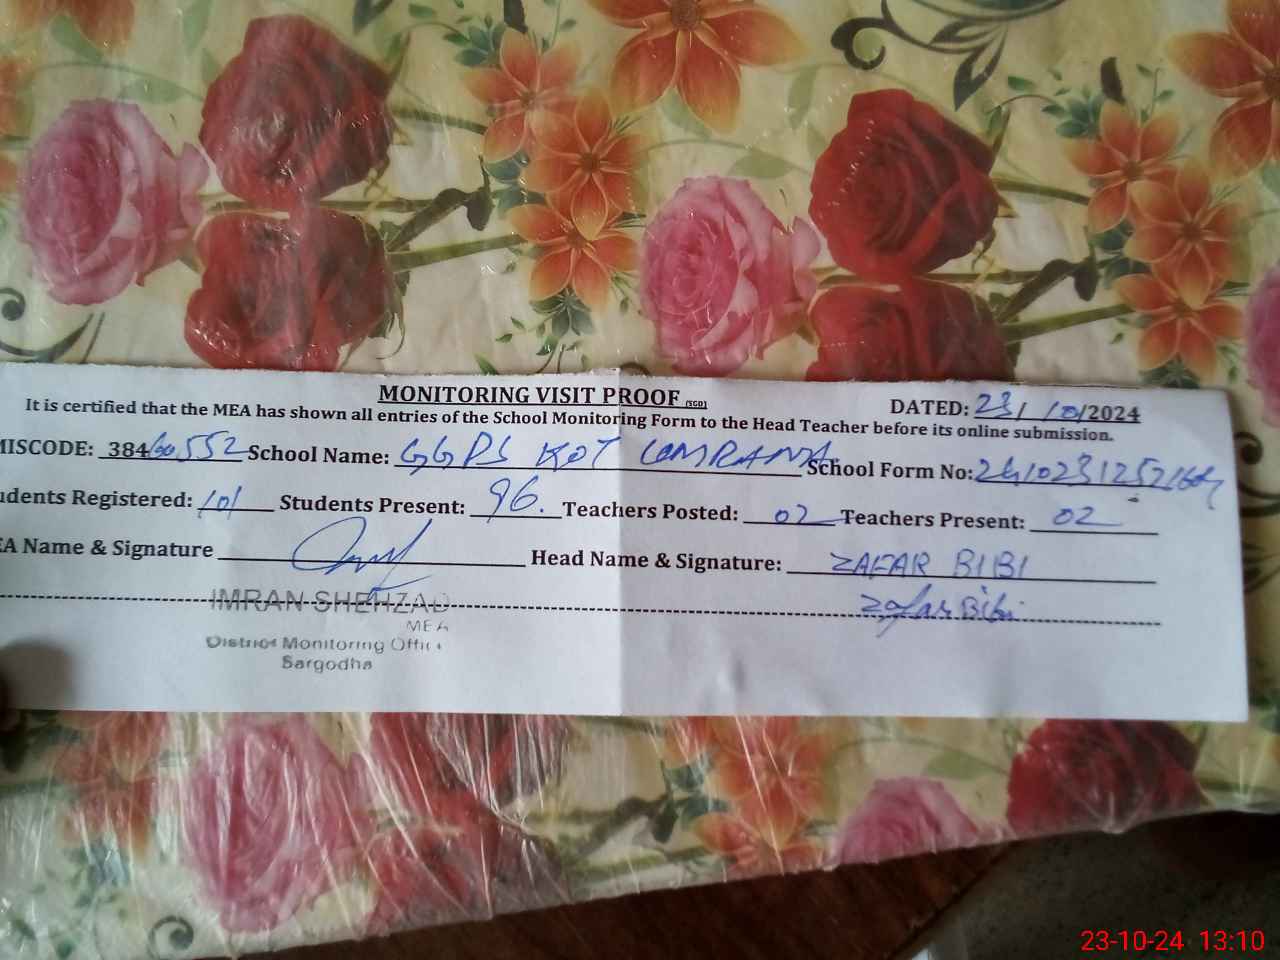 MONITORING VISIT PROOF (SGD)
DATED: 23/10/2024
It is certified that the MEA has shown all entries of the School Monitoring Form to the Head Teacher before its online submission.
MISCODE: 38460552 School Name: GGPS KOT School Form No:
udents Registered: 101 Students Present: 96. Teachers Posted: 02 Teachers Present: 02
EA Name & Signature Head Name & Signature: ZAFAR BIBI
Zafar Bibi
IMRAN SHEHZAD
MEA
District Monitoring Office
Sargodha
23-10-24 13:10